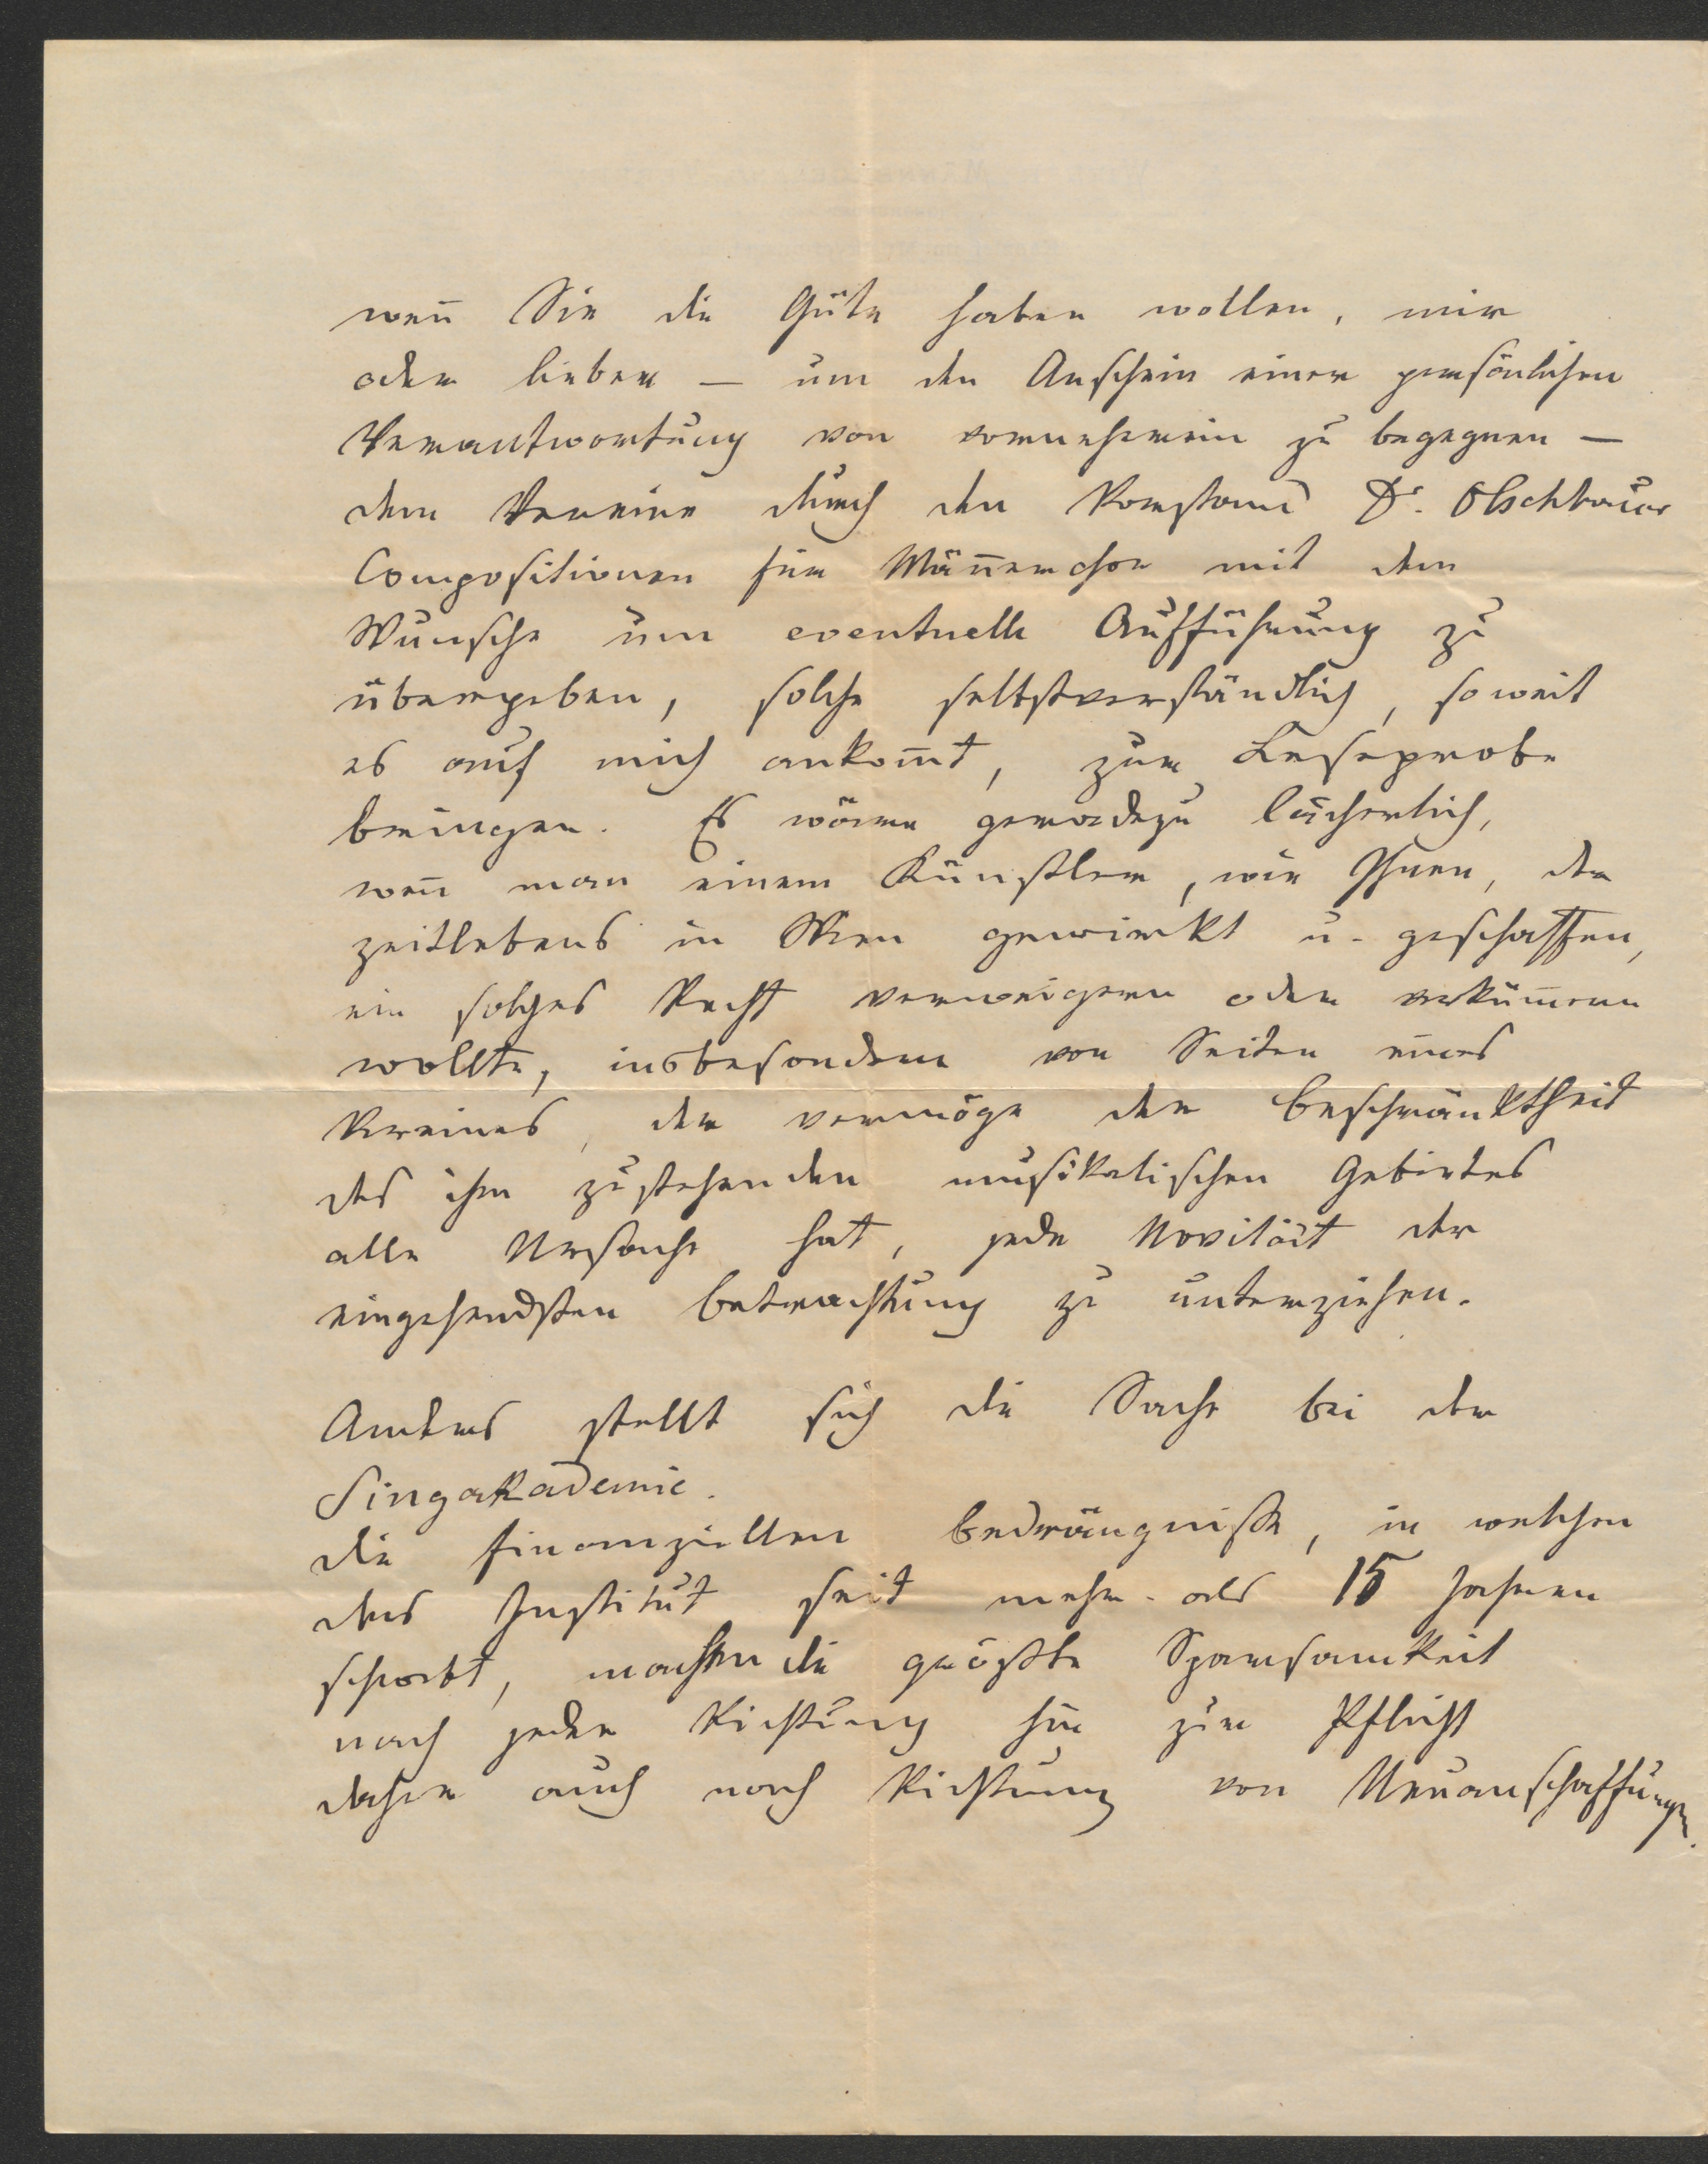 wen̄ Sie die Güte haben wollen, mir
oder lieber — um den Anschein einer persönlichen
Verantwortung von vorneherein zu begegnen —
dem Vereine durch den Vorstand Dr. Olschbaur
Compositionen für Män̄erchor mit dem
Wunsche um eventuelle Aufführung zu
übergeben, solche selbstverständlich, soweit
es auf mich ankom̄t, zur Leseprobe
bringen. Es wäre geradezu lächerlich,
wen̄ man einem Künstler, wie Ihnen, der
zeitlebens in Wien gewirkt u. geschaffen,
ein solches Recht verweigern oder verküm̄ern
wollte, insbesondere von Seiten eines
Vereines, der vermöge der Beschränktheit
des ihm zustehenden musikalischen Gebietes
alle Ursache hat, jede Novität der
eingehendsten Betrachtung zu unterziehen.
Anders stellt sich die Sache bei der
Singakademie.
Die finanziellen Bedrängniße, in welchen
das Institut seit mehr als 15 Jahren
schwebt, machen die größte Sparsamkeit
nach jeder Richtung hin zur Pflicht
daher auch nach Richtung von Neuanschaffungen.